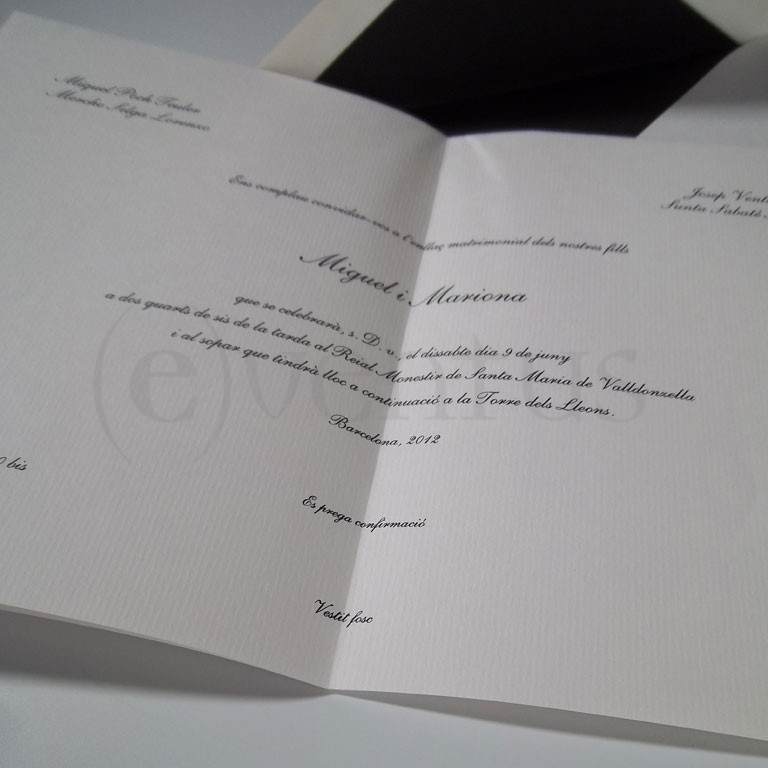 Miguel Poch
Merche Selga Lorenzo
Josep Vent
Santa Sabaté
Ens complau convidar-vos a l'enllaç matrimonial dels nostres fills
Miguel i Mariona
que se celebrarà, s. D. v., el dissabte dia 9 de juny
a dos quarts de sis de la tarda al Reial Monestir de Santa Maria de Valldonzella
i al sopar que tindrà lloc a continuació a la Torre dels Lleons.
Barcelona, 2012
0 bis
Es prega confirmació
Vestit fosc